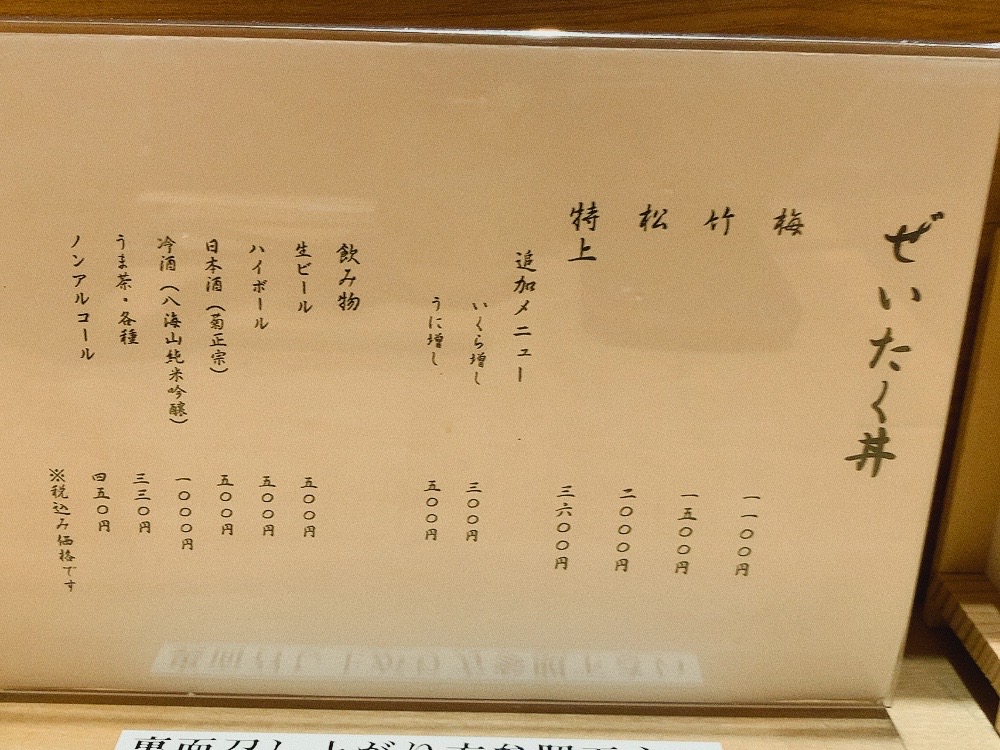 ぜいたく丼
梅 一一〇〇円
竹 一五〇〇円
松 二〇〇〇円
特上 三六〇〇円
追加メニュー
いくら増し 三〇〇円
うに増し 五〇〇円
飲み物
生ビール 五〇〇円
ハイボール 五〇〇円
日本酒(菊正宗) 五〇〇円
冷酒(八海山純米吟醸) 一〇〇〇円
うま茶・各種 三三〇円
ノンアルコール 四五〇円
※税込み価格です